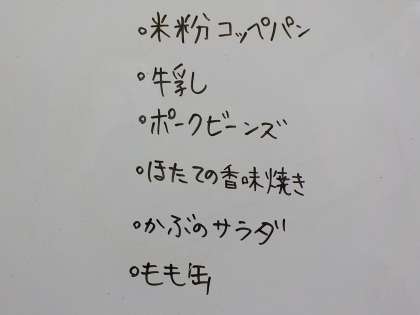 °米粉コッペパン
°牛乳
°ポークビーンズ
°ほたての香味焼き
°かぶのサラダ
°もも缶